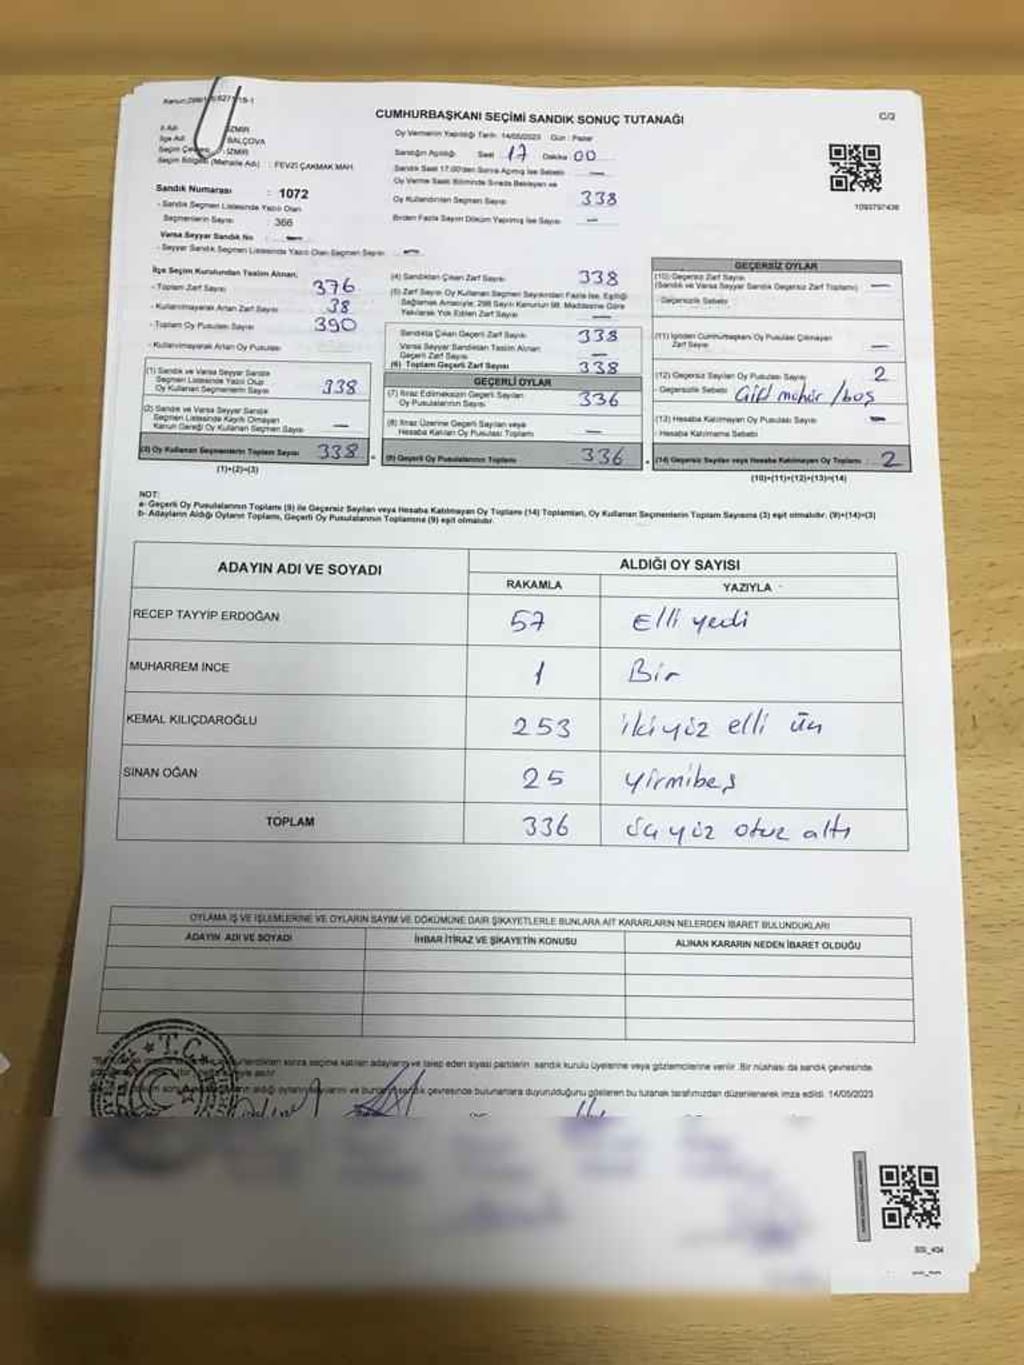 CUMHURBAŞKANI SEÇİMİ SANDIK SONUÇ TUTANAĞI
C/2
İl Adı : İZMİR
İlçe Adı : BALÇOVA
Seçim Çevresi : İZMİR
Seçim Bölgesi (Mahalle Adı) : FEVZİ ÇAKMAK MAH.
Sandık Numarası : 1072
- Sandık Seçmen Listesinde Yazılı Olan
Seçmenlerin Sayısı : 366
Varsa Seyyar Sandık No : —
- Seyyar Sandık Seçmen Listesinde Yazılı Olan Seçmen Sayısı : —
Oy Vermenin Yapıldığı Tarih : 14/05/2023 Gün : Pazar
Sandığın Açıldığı Saat 17 Dakika 00
Sandık Saat 17.00'den Sonra Açılmış İse Sebebi —
Oy Verme Saati Bitiminde Sırada Bekleyen ve
Oy Kullandırılan Seçmen Sayısı 338
Birden Fazla Sayım Döküm Yapılmış İse Sayısı —
1093797436
İlçe Seçim Kurulundan Teslim Alınan;
- Toplam Zarf Sayısı : 376
- Kullanılmayarak Artan Zarf Sayısı : 38
- Toplam Oy Pusulası Sayısı : 390
- Kullanılmayarak Artan Oy Pusulası
(1) Sandık ve Varsa Seyyar Sandık
Seçmen Listesinde Yazılı Olup
Oy Kullanan Seçmenlerin Sayısı : 338
(2) Sandık ve Varsa Seyyar Sandık
Seçmen Listesinde Kayıtlı Olmayan
Kanun Gereği Oy Kullanan Seçmen Sayısı : —
(3) Oy Kullanan Seçmenlerin Toplam Sayısı : 338
(1)+(2)=(3)
(4) Sandıktan Çıkan Zarf Sayısı : 338
(5) Zarf Sayısı Oy Kullanan Seçmen Sayısından Fazla İse, Eşitliği
Sağlamak Amacıyla; 298 Sayılı Kanunun 98. Maddesine Göre
Yakılarak Yok Edilen Zarf Sayısı : —
Sandıkta Çıkan Geçerli Zarf Sayısı : 338
Varsa Seyyar Sandıktan Teslim Alınan
Geçerli Zarf Sayısı : —
(6) Toplam Geçerli Zarf Sayısı : 338
GEÇERLİ OYLAR
(7) İtiraz Edilmeksizin Geçerli Sayılan
Oy Pusulalarının Sayısı : 336
(8) İtiraz Üzerine Geçerli Sayılan veya
Hesaba Katılan Oy Pusulası Toplamı : —
(9) Geçerli Oy Pusulalarının Toplamı : 336
GEÇERSİZ OYLAR
(10) Geçersiz Zarf Sayısı
(Sandık ve Varsa Seyyar Sandık Geçersiz Zarf Toplamı) : —
- Geçersizlik Sebebi
(11) İçinden Cumhurbaşkanı Oy Pusulası Çıkmayan
Zarf Sayısı : —
(12) Geçersiz Sayılan Oy Pusulası Sayısı : 2
- Geçersizlik Sebebi : Çift mühür / boş
(13) Hesaba Katılmayan Oy Pusulası Sayısı : —
- Hesaba Katılmama Sebebi
(14) Geçersiz Sayılan veya Hesaba Katılmayan Oy Toplamı : 2
(10)+(11)+(12)+(13)=(14)
NOT:
a- Geçerli Oy Pusulalarının Toplamı (9) ile Geçersiz Sayılan veya Hesaba Katılmayan Oy Toplamı (14) Toplamları, Oy Kullanan Seçmenlerin Toplam Sayısına (3) eşit olmalıdır. (9)+(14)=(3)
b- Adayların Aldığı Oyların Toplamı, Geçerli Oy Pusulalarının Toplamına (9) eşit olmalıdır.
ADAYIN ADI VE SOYADI
ALDIĞI OY SAYISI
RAKAMLA YAZIYLA
RECEP TAYYİP ERDOĞAN 57 Elli yedi
MUHARREM İNCE 1 Bir
KEMAL KILIÇDAROĞLU 253 ikiyüz elli üç
SİNAN OĞAN 25 yirmibeş
TOPLAM 336 üçyüz otuz altı
OYLAMA İŞ VE İŞLEMLERİNE VE OYLARIN SAYIM VE DÖKÜMÜNE DAİR ŞİKAYETLERLE BUNLARA AİT KARARLARIN NELERDEN İBARET BULUNDUKLARI
ADAYIN ADI VE SOYADI İHBAR İTİRAZ VE ŞİKAYETİN KONUSU ALINAN KARARIN NEDEN İBARET OLDUĞU
sonra seçime katılan adayların ve talep eden siyasi partilerin sandık kurulu üyelerine veya gözlemcilerine verilir. Bir nüshası da sandık çevresinde
T.C.
aldığı oyların sayılarını ve bunların sandık çevresinde bulunanlara duyurulduğunu gösteren bu tutanak tarafımızdan düzenlenerek imza edildi. 14/05/2023